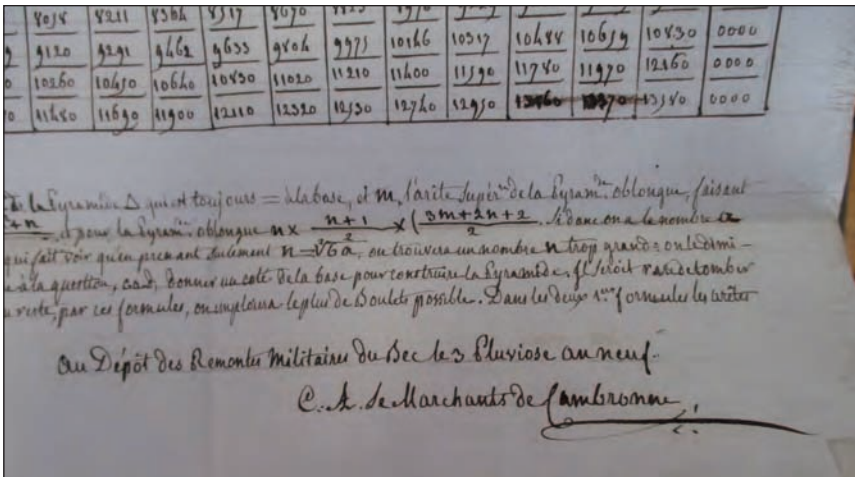 8058 8211 8364 8517 8670
9120 9291 9462 9633 9804 9975 10146 10317 10488 10659 10830 0000
10260 10450 10640 10830 11020 11210 11400 11590 11780 11970 12160 0000
11480 11690 11900 12110 12320 12530 12740 12950 13160 13370 13580 0000
de la Pyramide Δ qui est toujours = à la base, et m, l'arite supér.re de la Pyram.de oblongue, faisant
+n, et pour la Pyram.de oblongue n x n+1/2 x (3m+2n+2/2. Si donc on a le nombre a
qui fait voir qu'en prenant seulement n = ∛6a, on trouvera un nombre n trop grand: on le dimi-
à la question, c.a.d, donner un coté de la base pour construire la Pyramide. Il seroit rare de tomber
reste, par ces formules, on emploira le plus de Boulets possible. Dans les deux 1.eres formules les arites
Au Dépôt des Remontes Militaires du Bec le 3 Pluviose an neuf.
C. A. De Marchants de Cambronne,